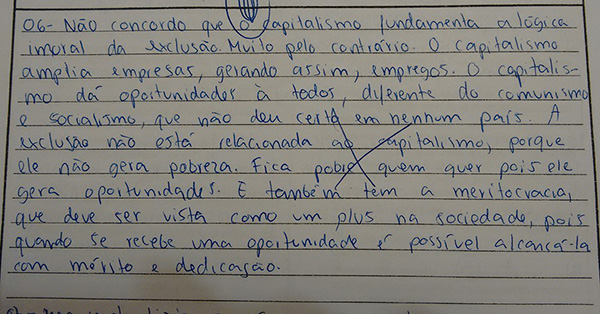 06- Não concordo que o capitalismo fundamenta a lógica
imoral da exclusão. Muito pelo contrário. O capitalismo
amplia empresas, gerando assim, empregos. O capitalis-
mo dá oportunidades à todos, diferente do comunismo
e socialismo, que não deu certo em nenhum país. A
exclusão não está relacionada ao capitalismo, porque
ele não gera pobreza. Fica pobre quem quer pois ele
gera oportunidades. E também têm a meritocracia,
que deve ser vista como um plus na sociedade, pois
quando se recebe uma oportunidade é possível alcansá-la
com mérito e dedicação.